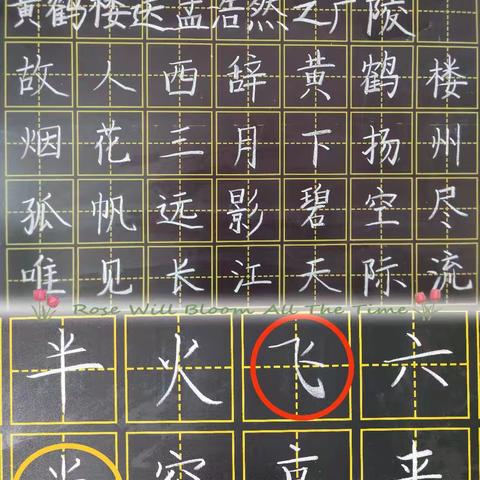 黄鹤楼送孟浩然之广陵
故人西辞黄鹤楼
烟花三月下扬州
孤帆远影碧空尽
唯见长江天际流
Rose Will Bloom All The Time
半火飞六